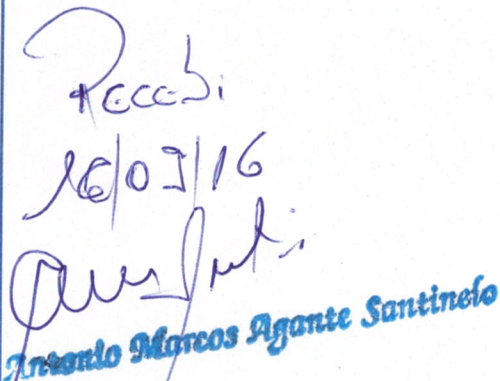 Recebi
16/09/16
Antonio Marcos Agante Santinelo